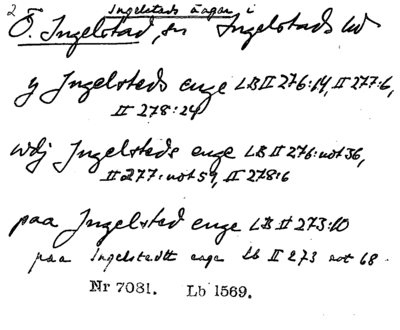 2 Ingelstads ängar i
Ö. Ingelstad, sn Ingelstads hd
y Ingelsteds enge LB II 276:14, II 277:6,
II 278:24
wdj Ingelsteds enge LB II 276: not 36,
II 277: not 59, II 278:6
paa Ingelsted enge LB II 273:10
paa Ingelstedtt enge Lb II 273 not 68
Nr 7081. Lb 1569.